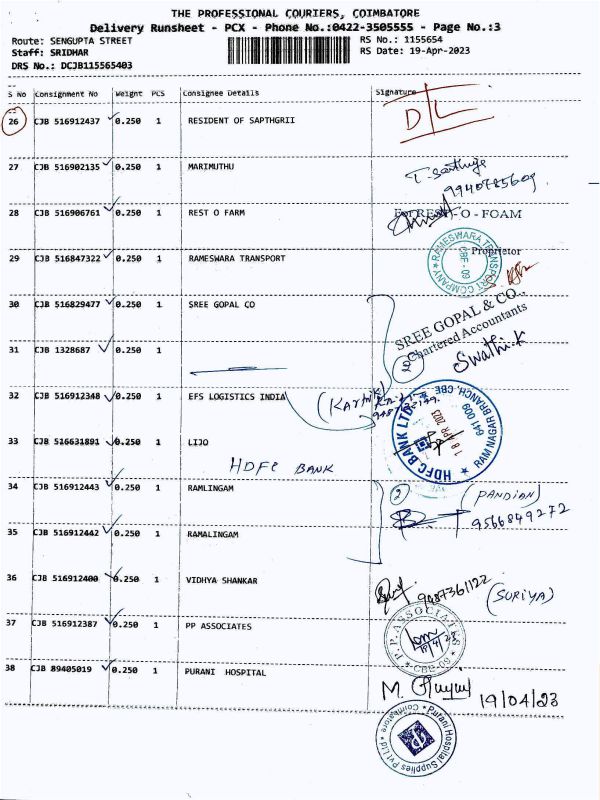 THE PROFESSIONAL COURIERS, COIMBATORE
Delivery Runsheet - PCX - Phone No.:0422-3505555 - Page No.:3
Route: SENGUPTA STREET
RS No.: 1155654
Staff: SRIDHAR
RS Date: 19-Apr-2023
DRS No.: DCJB115565403
S No Consignment No Weight PCS Consignee Details Signature
26 CJB 516912437 0.250 1 RESIDENT OF SAPTHGRII D/L
27 CJB 516902135 0.250 1 MARIMUTHU
9940785609
28 CJB 516906761 0.250 1 REST O FARM For REST-O-FOAM
Proprietor
29 CJB 516847322 0.250 1 RAMESWARA TRANSPORT
RAMESWARA TRANSPORT COMPANY CBE-09
30 CJB 516829477 0.250 1 SREE GOPAL CO
SREE GOPAL & CO.,
Chartered Accountants
Swathi.K
31 CJB 1328687 0.250 1
2
32 CJB 516912348 0.250 1 EFS LOGISTICS INDIA (Karthik)
HDFC BANK LTD. RAM NAGAR BRANCH, CBE 641 009
18 APR 2023
33 CJB 516631891 0.250 1 LIJO
HDFC BANK
34 CJB 516912443 0.250 1 RAMLINGAM 2 (PANDIAN)
9566849272
35 CJB 516912442 0.250 1 RAMALINGAM
36 CJB 516912400 0.250 1 VIDHYA SHANKAR 9487361122 (SURIYA)
37 CJB 516912387 0.250 1 PP ASSOCIATES
P.P. ASSOCIATES CBE-09
19/4/23
38 CJB 89405019 0.250 1 PURANI HOSPITAL M. 19/04/23
Purani Hospital Supplies Pvt Ltd Coimbatore